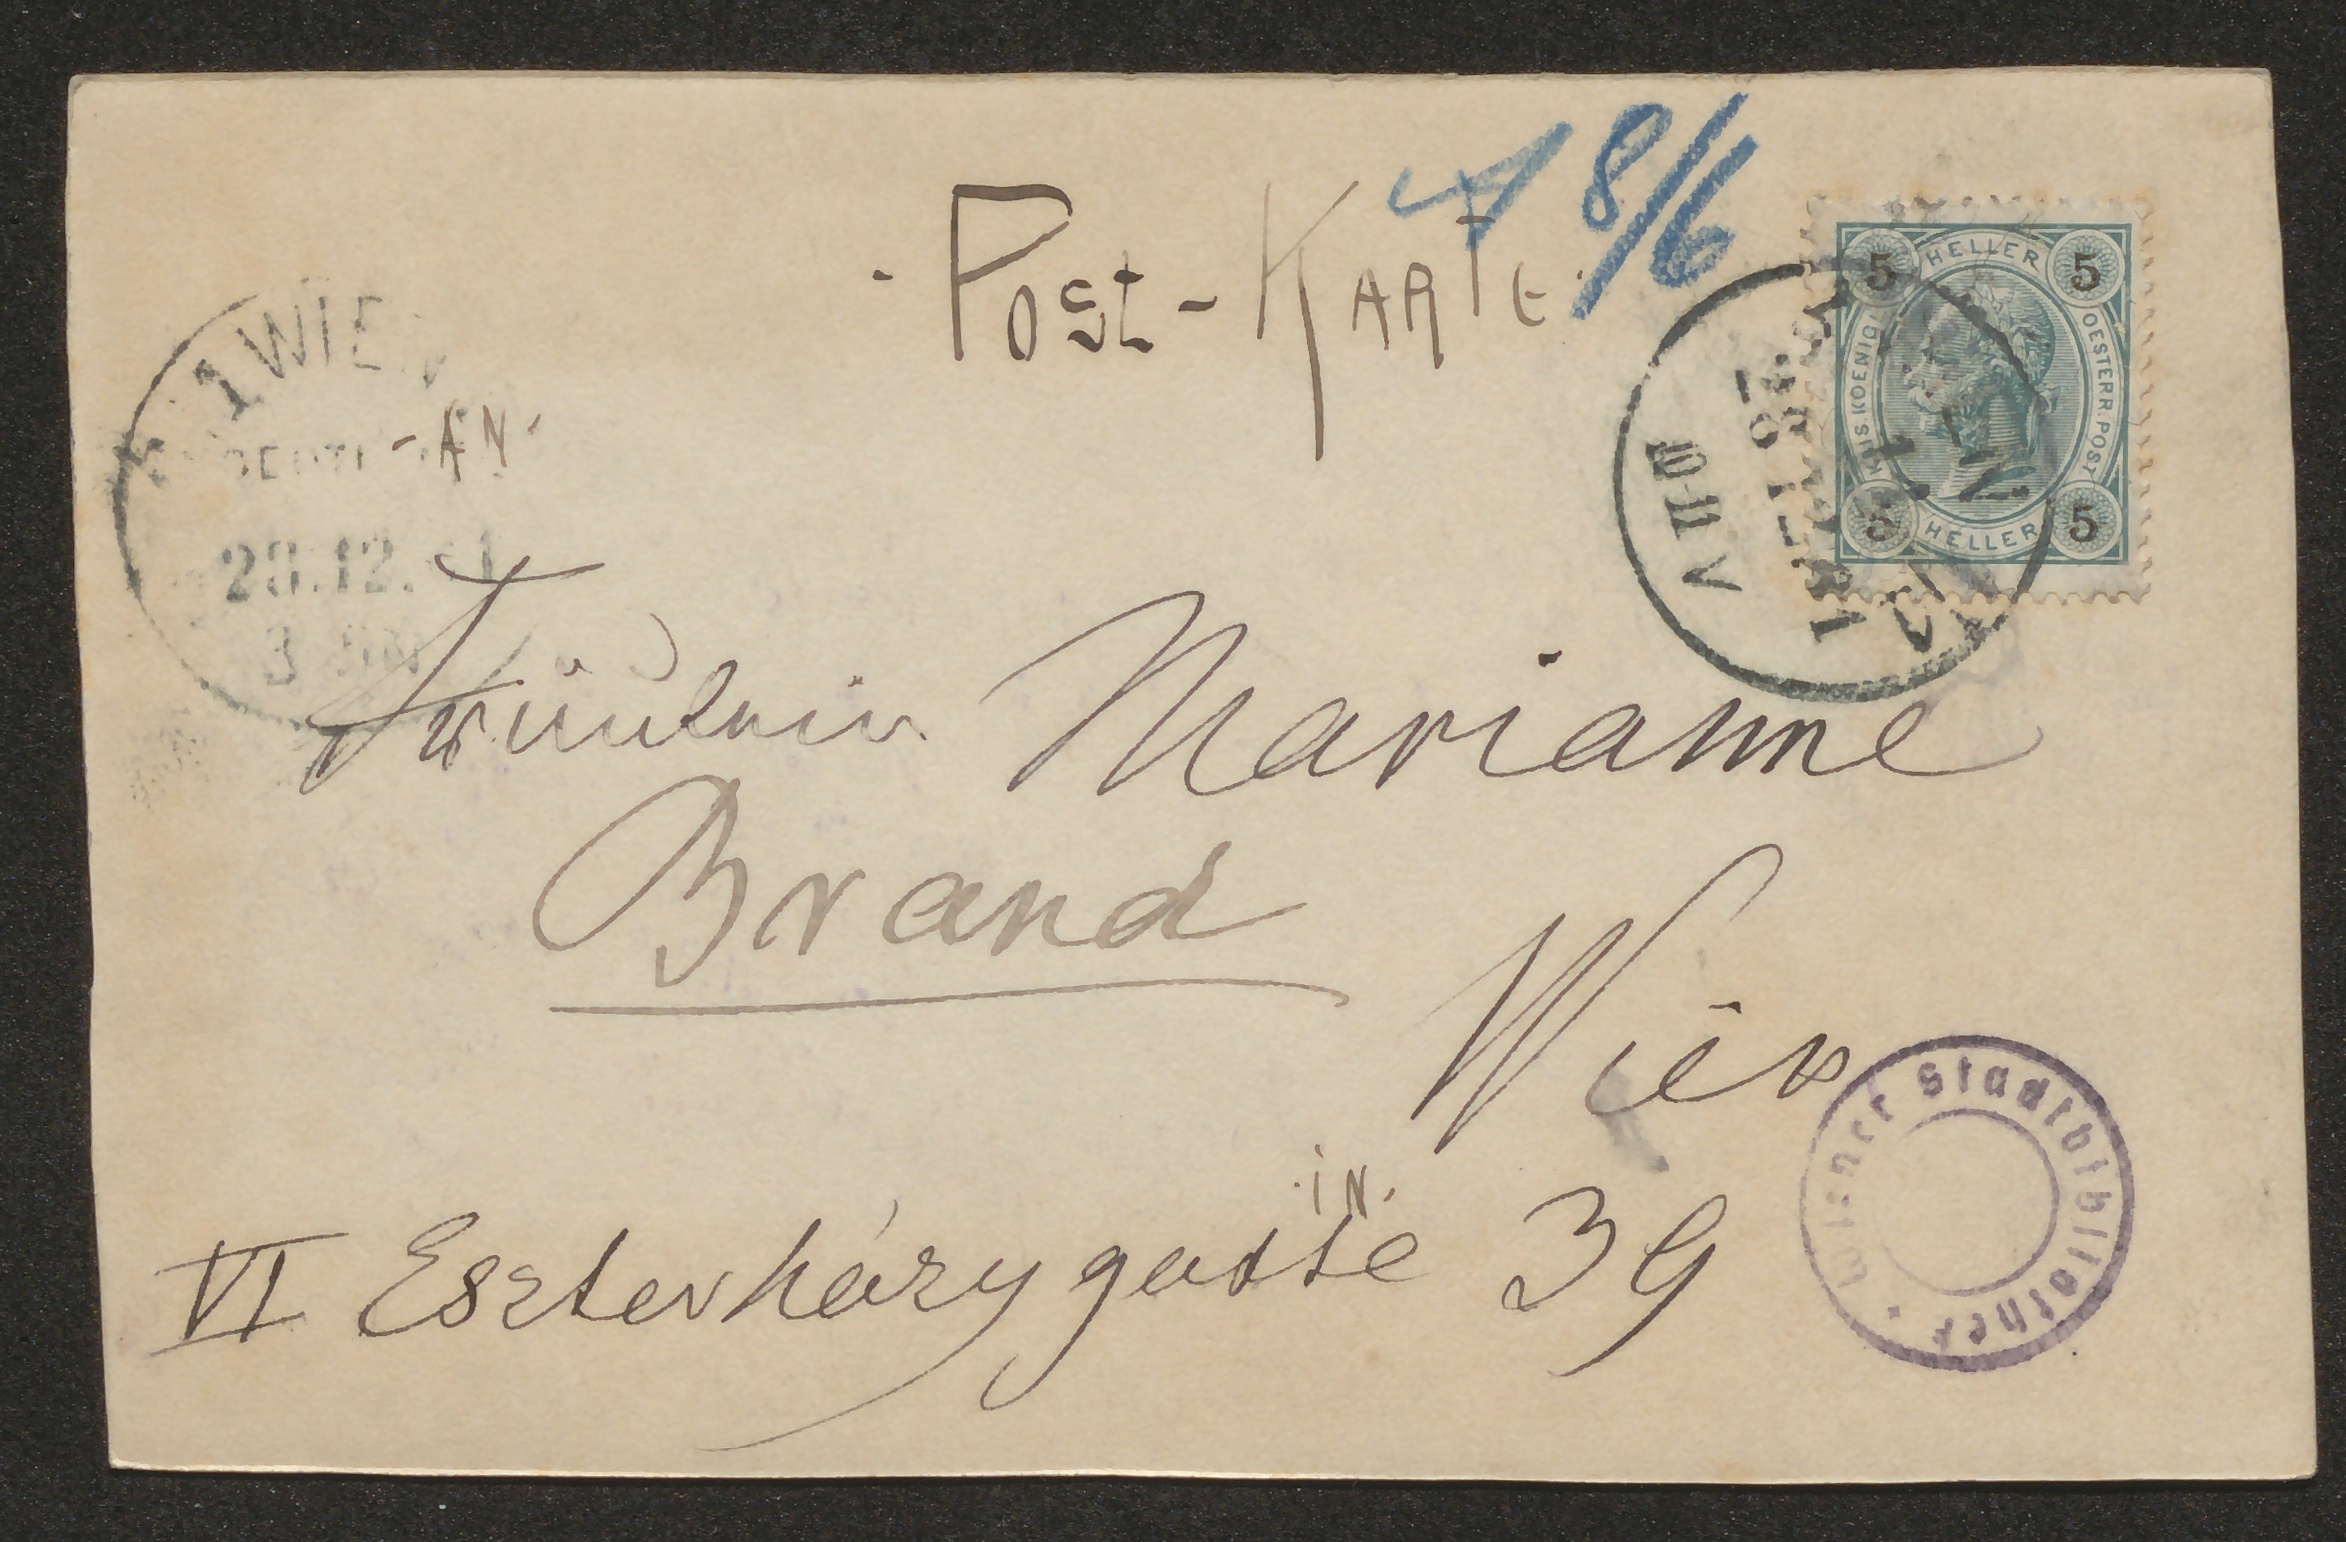 8/6
· Post - KARTE ·
5 HELLER 5
KAIS. KOENIGL.
OESTERR. POST
5 HELLER 5
1 WIEN
- AN -
28.12.
3
Fräulein Marianne
Brand
Wien
· iN ·
VI Eszterházygasse 39
Wiener Stadtbibliothek